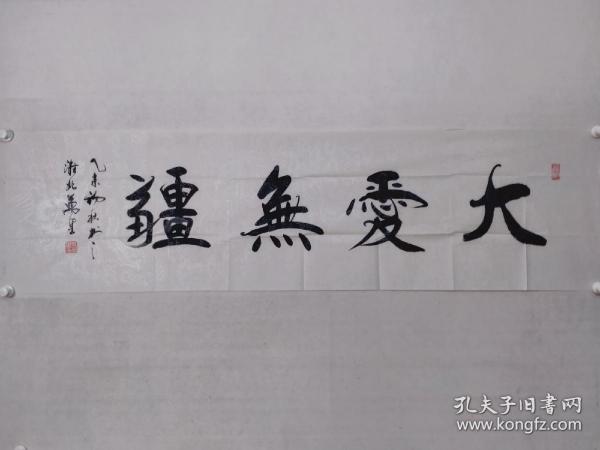 大愛無疆
乙未初秋書之
孔夫子旧書网
www.kongfz.com